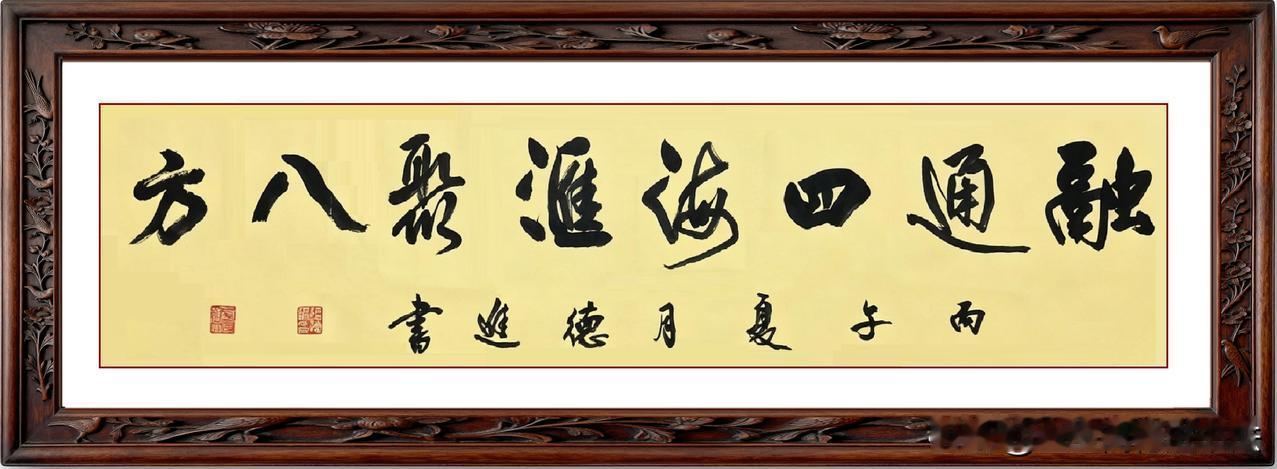 融通四海滙聚八方
丙午夏月德進書